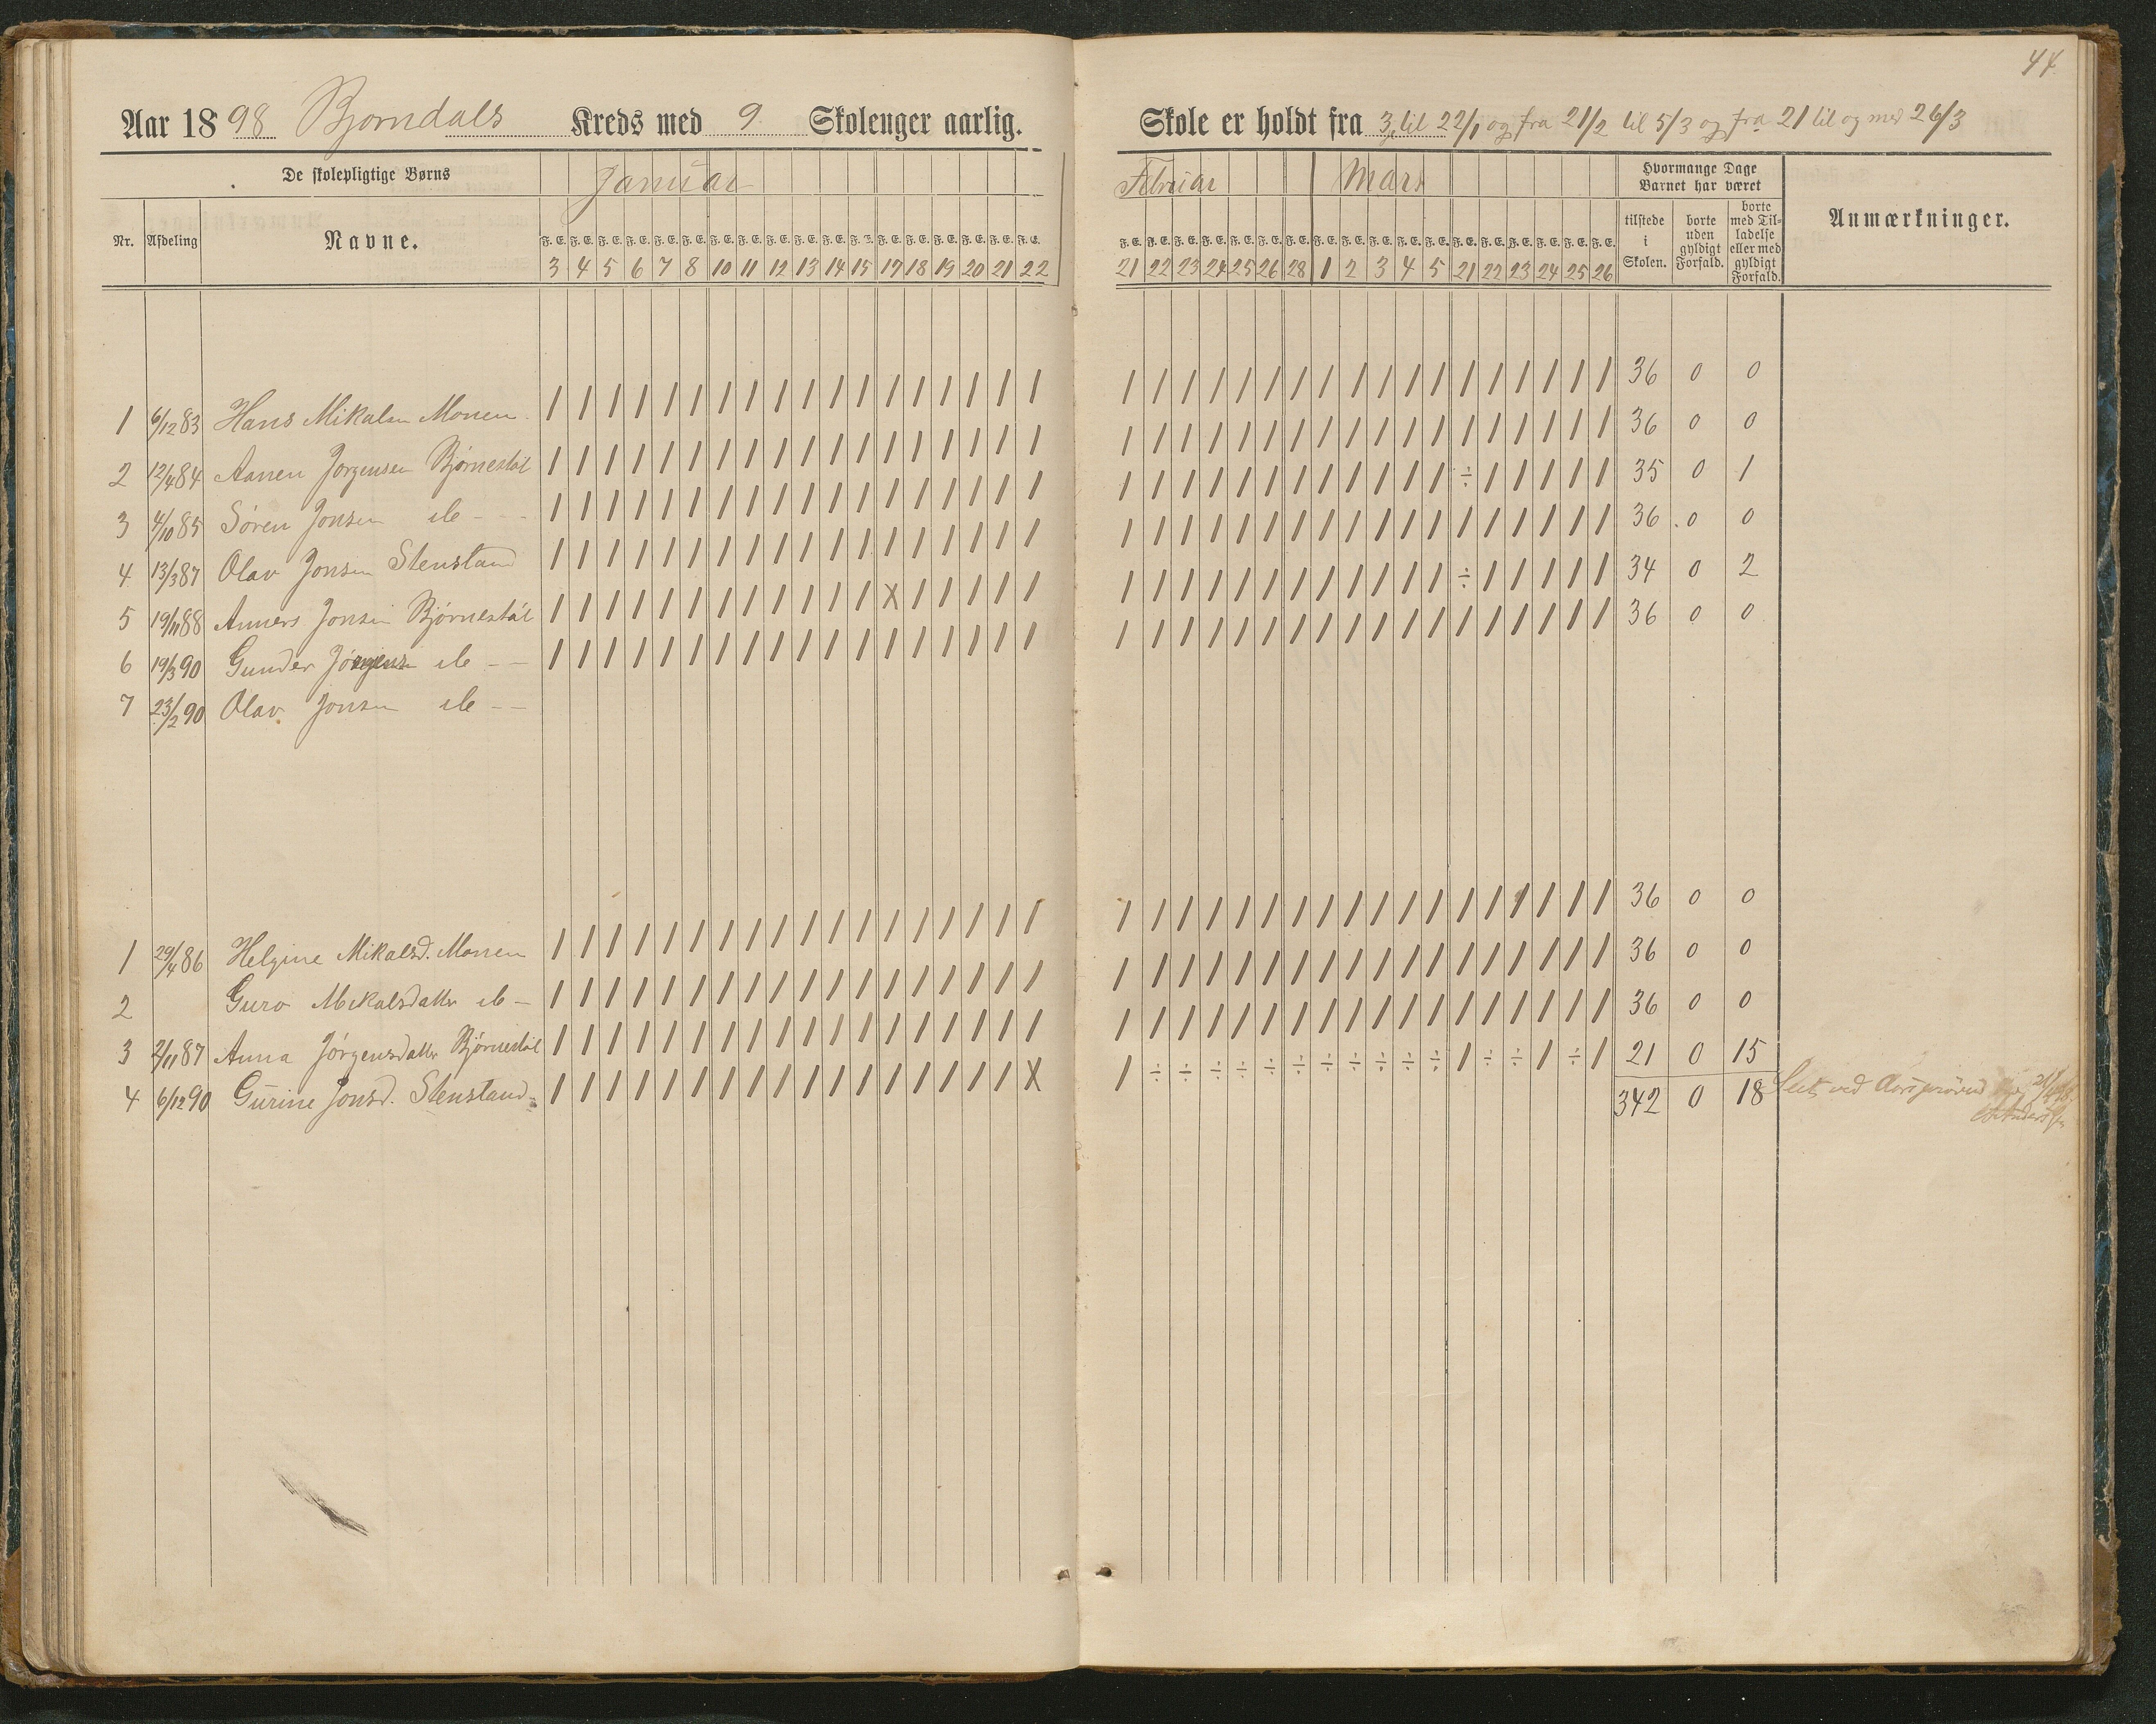 44
Aar 1898 Bjorndals Kreds med 9 Skoleuger aarlig.
Skole er holdt fra 3 til 22/1 og fra 21/2 til 5/3 og fra 21 til og med 26/3
De skolepligtige Børns Januar
Februar Mars Hvormange Dage Barnet har været Anmærkninger.
Nr. Afdeling Navne. F. E. F. E. F. E. F. E. F. E. F. E. F. E. F. E. F. E. F. E. F. E. F. E. F. E. F. E. F. E. F. E. F. E. F. E.
3 4 5 6 7 8 10 11 12 13 14 15 17 18 19 20 21 22
F. E. F. E. F. E. F. E. F. E. F. E. F. E. F. E. F. E. F. E. F. E. F. E. F. E. F. E. F. E. F. E. F. E. F. E.
21 22 23 24 25 26 28 1 2 3 4 5 21 22 23 24 25 26
tilstede i Skolen. borte uden gyldigt Forfald. borte med Tilladelse eller med gyldigt Forfald.
1 6/12 83 Hans Mikalsen Monen / / / / / / / / / / / / / / / / / / / / / / / / / / / / / / / / / / / / 36 0 0
2 12/4 84 Aanen Jorgensen Bjørnestøl / / / / / / / / / / / / / / / / / / / / / / / / / / / / / / / / / / / / 36 0 0
3 4/10 85 Søren Jonsen do - - / / / / / / / / / / / / / / / / / / / / / / / / / / / / / / ÷ / / / / / 35 0 1
4 13/3 87 Olav Jonsen Stensland / / / / / / / / / / / / / / / / / / / / / / / / / / / / / / / / / / / / 36 0 0
5 19/11 88 Anners Jonsen Bjørnestøl / / / / / / / / / / / / X / / / / / / / / / / / / / / / / / ÷ / / / / / 34 0 2
6 19/3 90 Gunder Jörgens do - - / / / / / / / / / / / / / / / / / / / / / / / / / / / / / / / / / / / / 36 0 0
7 23/2 90 Olav Jonsen do - -
1 29/4 86 Helgine Mikalsd. Monen / / / / / / / / / / / / / / / / / / / / / / / / / / / / / / / / / / / / 36 0 0
2 Guro Mikalsdatter do - / / / / / / / / / / / / / / / / / / / / / / / / / / / / / / / / / / / / 36 0 0
3 2/11 87 Anna Jörgensdatter Bjørnestøl / / / / / / / / / / / / / / / / / / / / / / / / / / / / / / / / / / / / 36 0 0
4 6/12 90 Gurine Jonsd. Stensland / / / / / / / / / / / / / / / / / X / ÷ ÷ ÷ ÷ ÷ ÷ ÷ ÷ ÷ ÷ ÷ / ÷ ÷ / ÷ / 21 0 15
342 0 18 ved